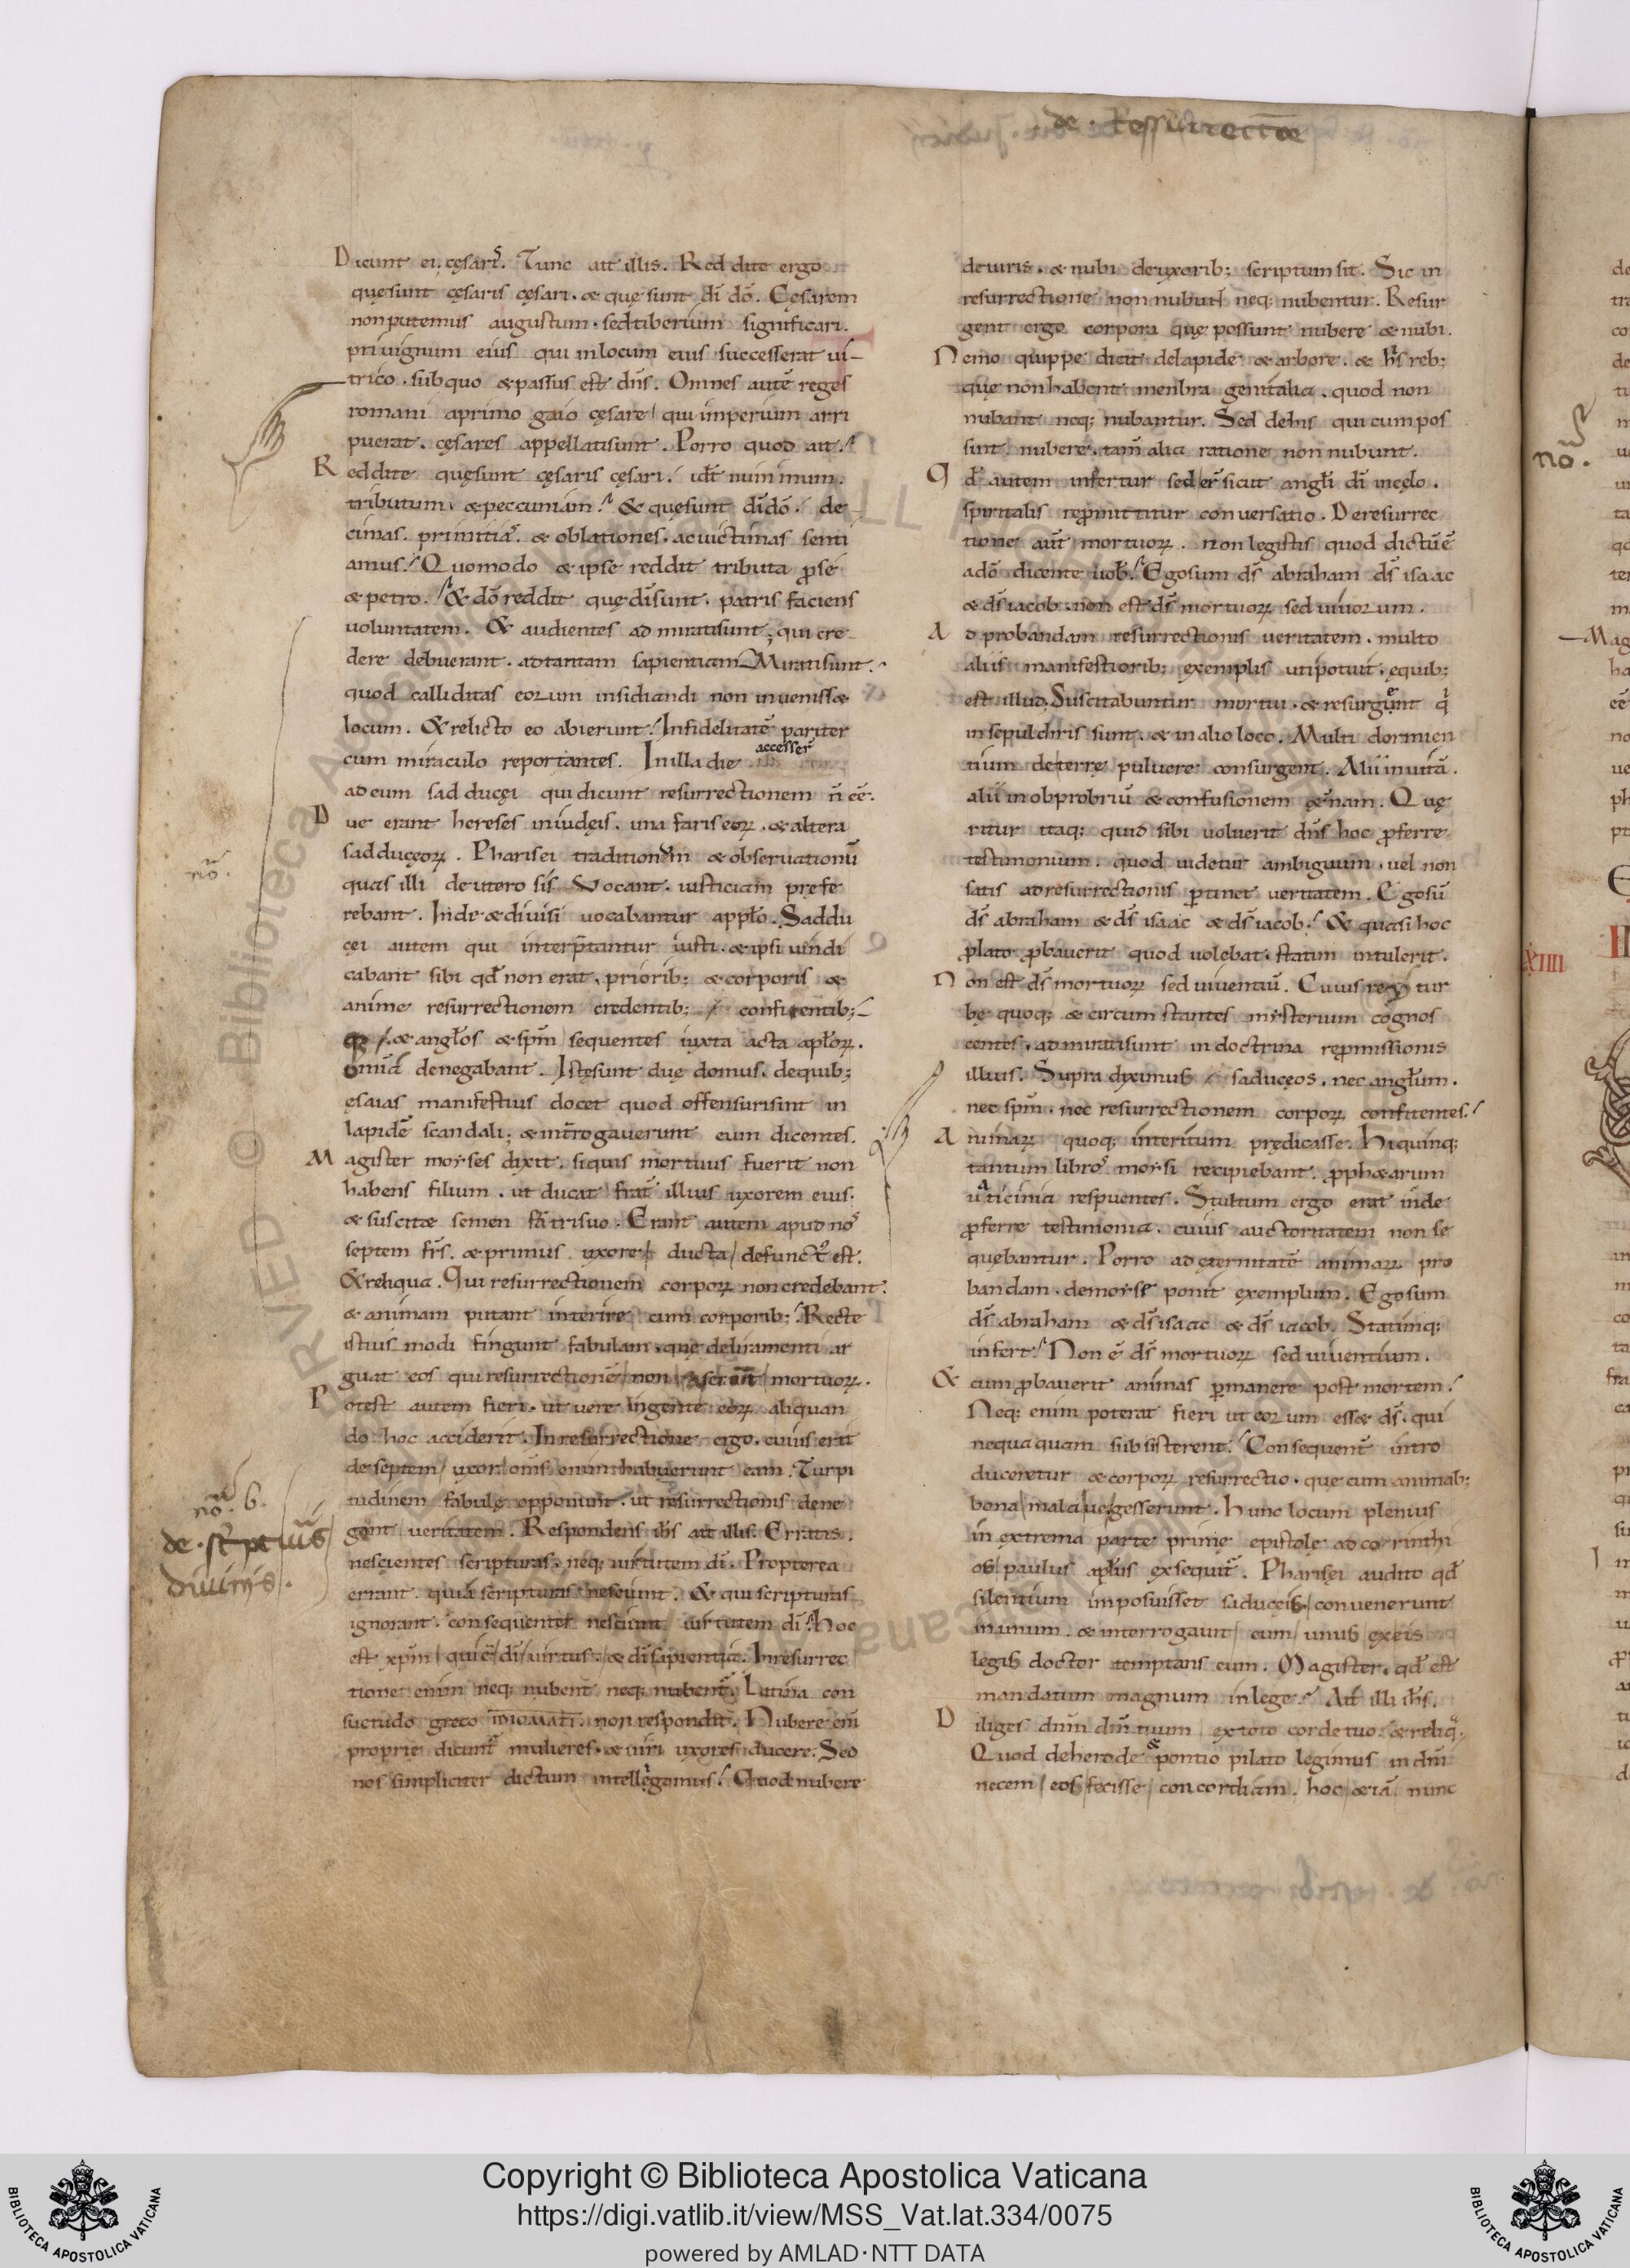 de Ressurrectõe
Dicunt ei. cęsaris. Tunc ait illis. Reddite ergo
quęsunt cęsaris cęsari. & quę sunt di͞ dõ. Cęsarem
nonputemus augustum. sedtiberium significari.
priuignum eius qui inlocum eius successerat ui-
trico. subquo &passus est dn͞s. Omnes autẽ reges
romani aprimo gaio cęsare qui imperium arri
puerat. cęsares appellatisunt. Porro quod ait.
Reddite quęsunt cęsaris cęsari. id͞t nummum.
tributum. &peccuniam. & quęsunt di͞dõ. de-
cimas. primitias. & oblationes. acuictimas senti
amus. Quomodo & ipse reddit tributa ꝓse
& petro. & dõ reddit quę di͞sunt. patris faciens
uoluntatem. & audientes admiratisunt, qui cre-
dere debuerant. adtantam sapientiam. Miratisunt.
quod calliditas eorum insidiandi non inuenisse
locum. & relicto eo abierunt. Infidelitatẽ pariter
cum miraculo reportantes. Inilla die accesser͞
adeum sadducęi qui dicunt resurrectionem n͞ eẽ.
Duę erant hereses iniudęis. una fariseoꝝ. & altera
sadducęoꝝ. Pharisei traditionem & obseruationũ
quas illi deuterosis uocant. iusticiam pręfe
rebant. Inde & diuisi uocabantur appło. Saddu
cęi autem qui interp̃tantur iusti. & ipsi uindi
cabant sibi qd͞ non erat. priorib; & corporis &
animę resurrectionem credentib; confitentib;
q; & angłos & sp͞m sequentes iuxta acta apłoꝝ.
omĩa denegabant. Istęsunt duę domus. dequib;
ęsaias manifestius docet quod offensurisint in
lapidẽ scandali; & int̃rogauerunt eum dicentes.
Magister moyses dixit. siquis mortuus fuerit non
habens filium. ut ducat frat͞ illius uxorem eius.
& suscit& semen fratrisuo. Erant autem apud nos
septem fr͞s. & primus uxore ducta defunctꝰ est.
&reliqua. Qui resurrectionem corpoꝝ noncredebant.
& animam putant interire cum corporib; Recte
istius modi fingunt fabulam. quę deliramenti ar
guat eos qui resurrectionẽ non asserant mortuoꝝ.
Potest autem fieri. ut uere ingente eoꝝ aliquan
do hoc acciderit. Inresurrectione ergo. cuius erit
deseptem uxor. om͞s enim habuerunt eam. Turpi
tudinem fabulę opponunt. ut resurrectionis dene
gent ueritatem. Respondens ih͞s ait illis. Erratis.
nescientes scripturas. neq; uirtutem di͞. Propterea
errant quia scripturas nesciunt. & qui scripturas
ignorant. consequenter nesciunt uirtutem di͞. hoc
est xp͞m qui ẽ di͞ uirtus. & di͞ sapientia. Inresurrec
tione enim neq; nubent neq; nubent͞. Latina con
suetudo greco ΙΔΙΟΜΑΤΙ. non respondit. Nubere em͞
proprie dicunt͞ mulieres. & uiri uxores ducere. Sed
nos simpliciter dictum intellegamus. Quod nubere
nõ.
nõ. 6.
de. scripturis
diuinis.
deuiris. & nubi deuxorib; scriptum sit. Sic in
resurrectione non nubunt neq; nubentur. Resur
gent ergo corpora quę possunt nubere & nubi.
Nemo quippe dicit delapide & arbore. & h͞s reb;
quę nonhabent menbra genitalia. quod non
nubant neq; nubantur. Sed dehis qui cum pos
sint nubere. tam͞ alia ratione non nubunt.
Qd͞ autem infertur sed er͞ sicut angłi di͞ incęlo.
spiritalis repromittitur conuersatio. Deresurrec
tione aut͞ mortuoꝝ. non legistis quod dictũ ẽ
adõ dicente uob͞. Egosum ds͞ abraham ds͞ isaac
& ds͞ iacob. non est ds͞ mortuoꝝ sed uiuorum.
Ad probandam resurrectionis ueritatem. multo
aliis manifestiorib; exemplis utipotuit. equib;
est illud. Suscitabuntur mortui. & resurgent qͥ
insepulchris sunt. & inalio loco. Multi dormien
tium deterrę puluere consurgent. Alii inuitã.
alii inobprobriũ & confusionem ęt͞nam. Quę
ritur itaq; quid sibi uoluerit dn͞s hoc ꝓferre
testimonium. quod uidetur ambiguum. uel non
satis adresurrectionis ꝑtinet ueritatem. Egosũ
ds͞ abraham & ds͞ isaac & ds͞ iacob. & quasi hoc
ꝓlato ꝓbauerit quod uolebat. statim intulerit.
Non est ds͞ mortuoꝝ sed uiuentiũ. Cuius rei tur
bę quoq; & circumstantes mysterium cognos
centes. admiratisunt indoctrina repromissionis
illius. Supra diximus saducęos. nec angłum.
nec sp͞m. nec resurrectionem corpoꝝ confitentes.
Animaꝝ quoq; interitum prędicasse. Hiquinq;
tantum libros moysi recipiebant. ꝓph&arum
uaticinia respuentes. Stultum ergo erat inde
ꝓferre testimonia. cuius auctoritatem non se
quebantur. Porro adęternitatẽ animaꝝ pro
bandam. demoyse ponit exemplum. Egosum
ds͞ abraham & ds͞ isaac & ds͞ iacob. Statimq;
infert. Non ẽ ds͞ mortuoꝝ sed uiuentium.
& cum ꝓbauerit animas ꝑmanere post mortem.
Neq; enim poterat fieri ut eorum ess& ds͞. qui
nequaquam subsisterent. Consequent͞ intro
duceretur & corpoꝝ resurrectio. quę cum animab;
bona mala ue gesserunt. hunc locum plenius
in extrema parte primę epistolę adcorinthi
os paulus apłus exsequit͞. Pharisęi audito qd͞
silentium imposuisset saducęis. conuenerunt
inunum. & interrogauit eum unus exeis
legis doctor temptans eum. Magister. qd͞ est
mandatum magnum inlege. Ait illi ih͞s.
Diliges dnm͞ dm͞ tuum extoto corde tuo. & reliq.
Quod deherode & pontio pilato legimus indn͞i
necem eos fecisse concordiam. hoc &iã nunc
nõ.
XIIII
Copyright © Biblioteca Apostolica Vaticana
https://digi.vatlib.it/view/MSS_Vat.lat.334/0075
powered by AMLAD·NTT DATA
BIBLIOTECA APOSTOLICA VATICANA
BIBLIOTECA APOSTOLICA VATICANA